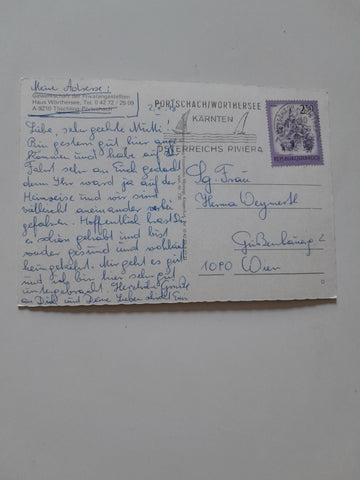 Meine Adresse:
Gewerkschaft der Privatangestellten
Haus Wörthersee, Tel. 0 42 72 / 25 09
A-9210 Töschling-Pörtschach
PÖRTSCHACH/WÖRTHERSEE
KÄRNTEN
ÖSTERREICHS RIVIERA
2.50
REPUBLIK ÖSTERREICH
Liebe, sehr geehrte Mutti!
Bin gestern gut hier ange-
kommen und habe auf der
Fahrt sehr an Euch gedacht
denn Ihr ward ja auf der
Heimreise und wir sind
vielleicht aneinander vorbei
gefahren. Hoffentlich hast Du
es schön gehabt und bist
wieder gesund und wohlauf
heimgekehrt. Mir geht es gut
und ich bin hier sehr gut
untergebracht. Herzliche Grüße
an Dich und Deine Lieben
Sg. Frau
Herma
1090 Wien